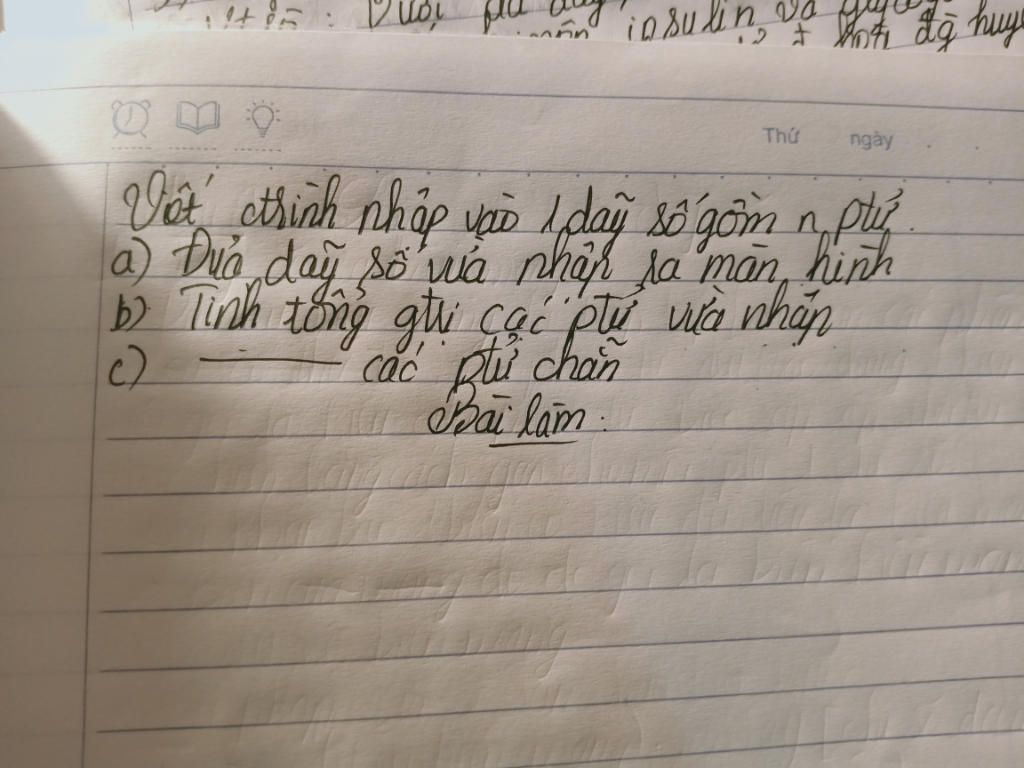 Dưới
insulin và
Thứ ngày
Viết ctrình nhập vào 1 dãy số gồm n ptử.
a) Đưa dãy số vừa nhập ra màn hình
b) Tính tổng gtrị các ptử vừa nhập
c) ——— các ptử chẵn
Bài làm: